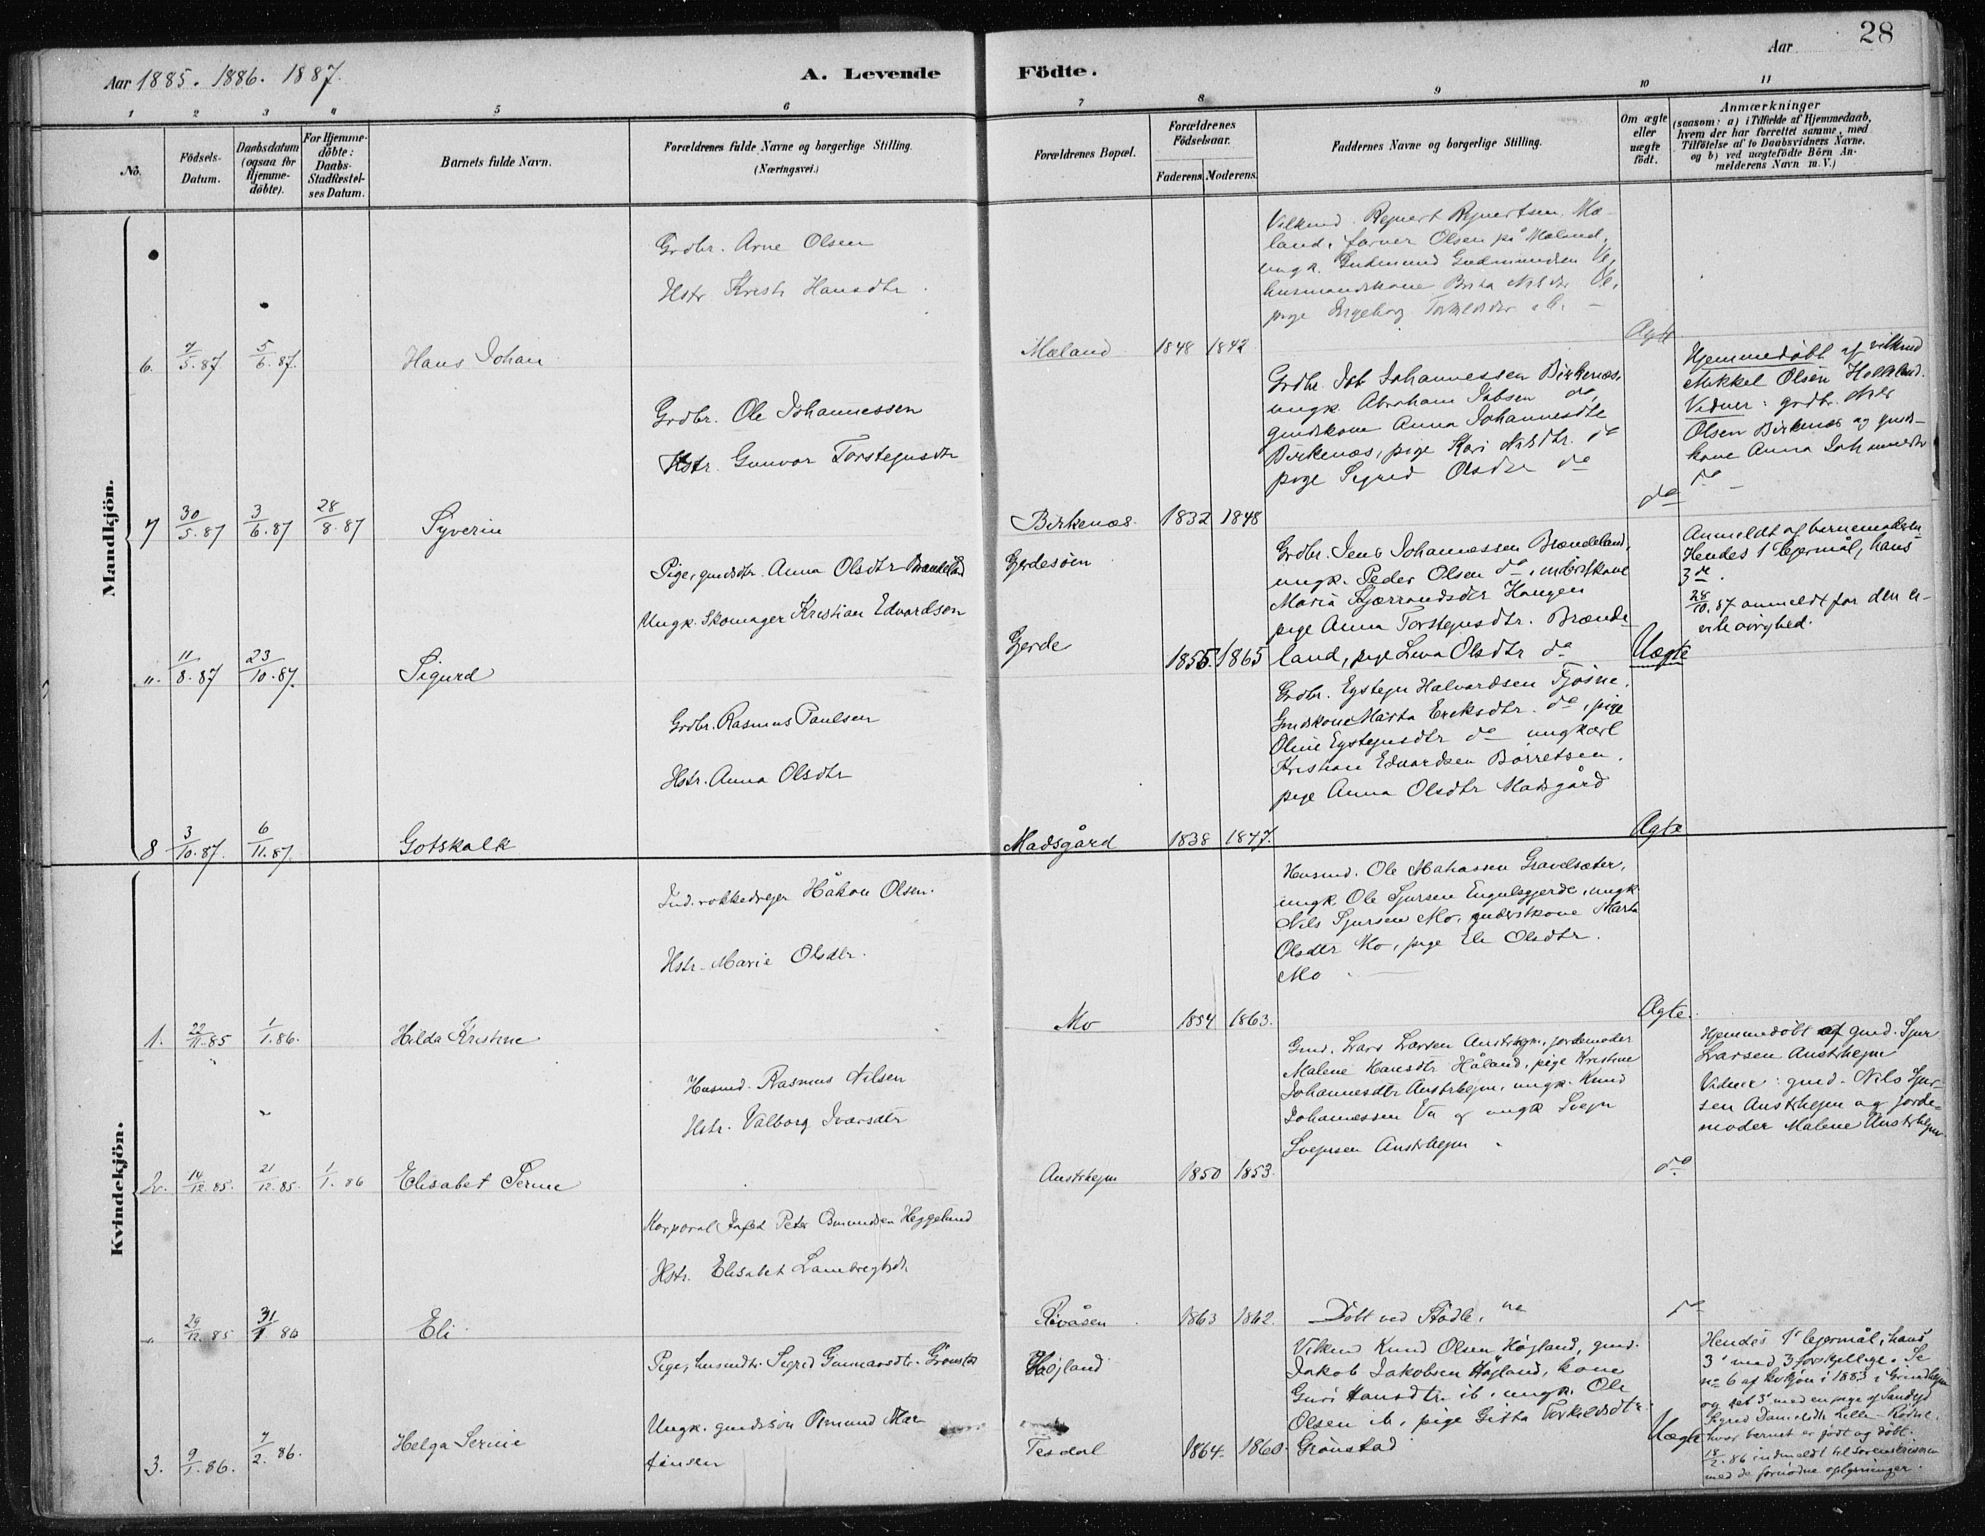 28
Aar 1885. 1886. 1887.
A. Levende Födte.
Aar
1 2 3 4 5 6 7 8 9 10 11
No.
Födsels-Datum.
Daabsdatum (ogsaa for Hjemmedöbte).
For Hjemmedöbte: Daabs-Stadfæstelses Datum.
Barnets fulde Navn.
Forældrenes fulde Navne og borgerlige Stilling.
(Næringsvei.)
Forældrenes Bopæl.
Forældrenes Födselsaar.
Faderens. Moderens.
Faddernes Navne og borgerlige Stilling.
Om ægte eller uægte födt.
Anmærkninger
(saasom: a) i Tilfælde af Hjemmedaab,
hvem der har forrettet samme, med
Tilföielse af to Daabsvidners Navne,
og b) ved uægtefödte Börn An-
melderens Navn m. V.)
Mandkjön.
6. 7/5.87 5/6.87. Hans Johan
Grdbr. Arne Olsen
Hstr Kristi Hansdtr.
Mæland 1848 1842
land, farver Olsen på Mæland,
ungk. Gudmund Gudmundsen
husmandskone Brita Nilsdtr
pige Ingeborg Torkelsdtr
Ægte
7 30/5.87 3/6.87 28/8.87 Syverin
Grdbr. Ole Johannessen
Hstr. Gunvor Torstejnsdtr
Birkenæs. 1832 1848
Grdbr. Job Johannessen Birkenæs,
ungk. Abraham Jobsen do,
gmdskone Anna Johannesdtr
Birkenæs, pige Kari Nilsdtr. do
pige Sigrid Olsdtr do
do
Hjemmedøbt af vilkmd
Mikkel Olsen
Vidner: grdbr. Nils
Olsen Birkenæs og gmds-
kone Anna Johannesdtr
do
". 11/8.87 23/10.87. Sigurd
Pige, gmdsdtr. Anna Olsdtr Brændeland
Ungk. Skomager Kristian Edvardsen
Gjerdesøen
Gjerde 1855. 1865
Grdbr. Jens Johannessen Brændeland,
ungk. Peder Olsen do, inderstkone
Maria Kjærrandsdtr Haugen
pige Anna Torstejnsdtr. Brænde-
land, pige Lena Olsdtr do
Uægte
Anmeldt af barnemoderen
Hendes 1 lejermål, hans
3de.
28/10.87 anmeldt for den ci-
vile øvrighed.
8 3/10.87. 6/11.87. Gotskalk
Grdbr. Rasmus Paulsen
Hstr. Anna Olsdtr
Madsgård 1838 1847.
Grdbr. Eystejn Halvardsen Tjøsne,
Gmdskone Marta Eriksdtr. do, pige
Oline Eystejnsdtr do ungkarl
Kristian Edvardsen Børretsen,
pige Anna Olsdtr Madsgård
Ægte
Kvindekjön.
1. 22/11.85 1/1.86. Hilda Kristine
Ind. rokkedrejer Håkon Olsen.
Hstr. Marie Olsdtr.
Mo 1854 1863.
Husmd. Ole Mathiassen Gravelsæter,
ungk. Ole Sjursen Engelsgjerde, ungk
Nils Sjursen Mo, inderstkone Marta
Olsdtr Mo, pige Eli Olsdtr.
Mo.
Ægte.
2. 14/12.85. 21/12.85. 1/1.86 Elisabet Serine
Husmd. Rasmus Nilsen
Hstr. Valborg Ivarsdtr
Austrhejm 1850 1853.
Gmd. Lars Larsen Austrhejm, jordemoder
Malene Hansdtr Håland, pige Kristine
Johannesdtr Austrhejm, ungk. Knud
Johannessen og ungk Svejn
Svejnsen Austrhejm
do
Hjemmedøbt af gmd. Sjur
Larsen Austrhejm
Vidner: gmd. Nils Sjur-
sen Austrhejm og jorde-
moder Malene Austrhejm
" 29/12.85 31/1.86 Eli
Korporal Peter Osmundsen Heggelund
Hstr. Elisabet Lambregtsdtr
Røvåsen 1863 1862.
Døbt ved Stødle.
do
3. 9/1.86. 7/2.86. Helga Serine
Pige, husmdsdtr. Sigrid Gunnarsdtr. Grønstad
Ungk. gmdssøn Osmund Mar-
tinsen
Højland
Tesdal 1864. 1860.
Vilkmd Knud Olsen Højland, gmd.
Jakob Jakobsen Højland, kone
Guri Hansdtr ib., ungk. Ole
Olsen ib., pige Gitta Torkelsdtr
Grønstad
Uægte
Hendes 1' lejermål, hans
3' med 3 forskellige. Se
no 6 af hvkjøn i 1883 i
og det 3' med en pige af Sandejd
Sigrid Danielsdtr
hvor barnet er født og døbt.
18/2.86 indmeldt til sorenskriveren
med de fornødne oplysninger.